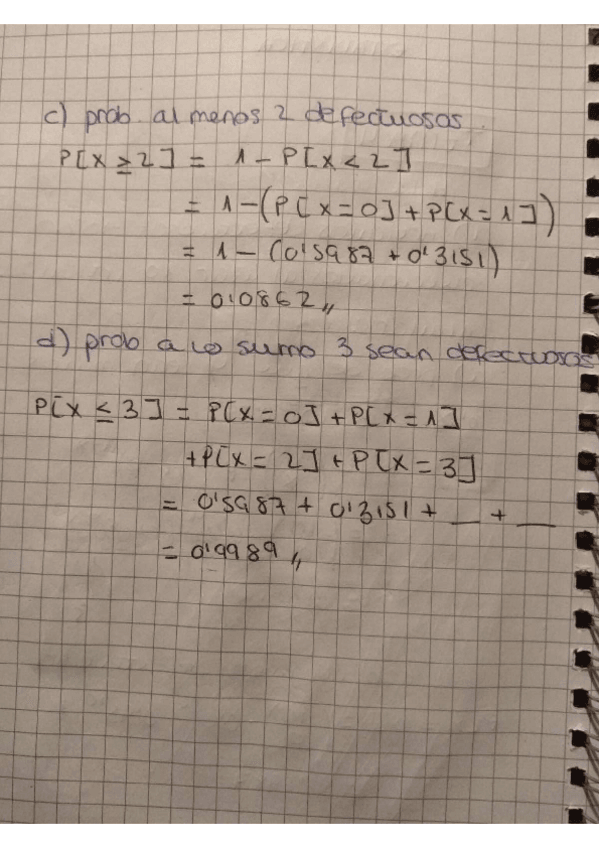 c) prob. al menos 2 defectuosos.
P[X ≥ 2] = 1 - P[X < 2]
= 1 - (P[X = 0] + P[X = 1])
= 1 - (0'5987 + 0'3151)
= 0'0862,,
d) prob a lo sumo 3 sean defectuosos
P[X ≤ 3] = P[X = 0] + P[X = 1]
+ P[X = 2] + P[X = 3]
= 0'5987 + 0'3151 + __ + __
= 0'9989,,